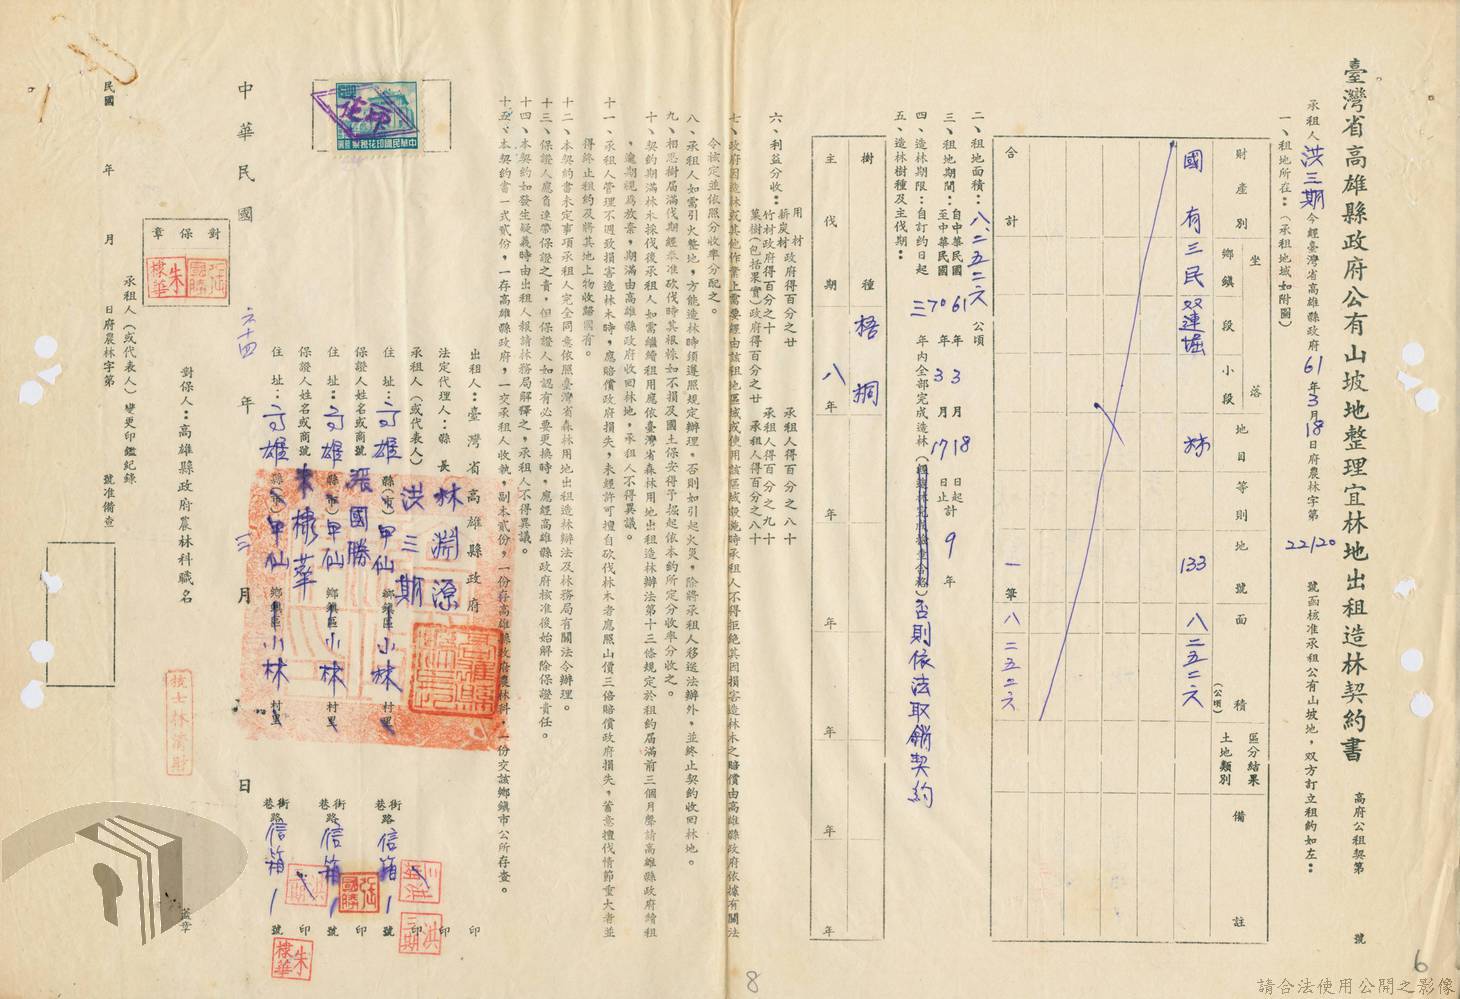 臺灣省高雄縣政府公有山坡地整理宜林地出租造林契約書
高府公租契第 號
承租人洪三期今經臺灣省高雄縣政府61年3月18日府農林字第22120號函核准承租公有山坡地，双方訂立租約如左：
一、租地所在：（承租地域如附圖）
財產別 坐落 鄉鎮 段 小段 地目 等則 地號 面積（公頃） 區分結果 土地類別 備註
國有 三民 双連堀 林 133 八二五二六
合計 一筆 八二五二六
二、租地面積：八、二五二六公頃
三、租地期間：自中華民國61年3月18日起計9年
至中華民國70年3月17日止
四、造林期限：自訂約日起三年內全部完成造林（經造林完成檢查合格）否則依法取銷契約
五、造林樹種及主伐期：
樹種 梧桐
主伐期 八年 年 年 年 年 年
六、利益分收：
用材
薪炭材 政府得百分之廿 承租人得百分之八十
竹材政府得百分之十 承租人得百分之九十
菓樹（包括果實）政府得百分之廿 承租人得百分之八十
七、政府因造林或其他作業上需要經由該租地區域或使用該區域設施時承租人不得拒絕其因損害造林木之賠償由高雄縣政府依據有關法
令核定並依照分收率分配之。
八、承租人如需引火整地，方能造林時須遵照規定辦理。否則如引起火災，除將承租人移送法辦外，並終止契約收回林地。
九、相思樹屆滿伐期經奉准砍伐時其根株如不損及國土保安得予掘起依本約所定分收率分收之。
十、契約期滿林木採伐後承租人如需繼續租用應依臺灣省森林用地出租造林辦法第十三條規定於租約屆滿前三個月聲請高雄縣政府續租
，逾期視為放棄，期滿由高雄縣政府收回林地，承租人不得異議。
十一、承租人管理不週致損害造林木時，應賠償政府損失，未經許可擅自砍伐林木者應照山價三倍賠償政府損失，蓄意擅伐情節重大者並
得終止租約及將其地上物收歸國有。
十二、本契約書未定事項承租人完全同意依照臺灣省森林用地出租造林辦法及林務局有關法令辦理。
十三、保證人應負連帶保證之責，但保證人如認有必要更換時，應經高雄縣政府核准後始解除保證責任。
十四、本契約如發生疑義時由出租人報請林務局解釋之，承租人不得異議。
十五、本契約書一式貳份，一存高雄縣政府，一交承租人收執，副本貳份，一份存高雄縣政府農林科，一份交該鄉鎮市公所存查。
出租人：臺灣省高雄縣政府 印
法定代理人：縣長 林淵源 印
承租人（或代表人）洪三期 印
住址：高雄縣（市）甲仙鄉鎮區小林村里 街巷路信箱1號
保證人姓名或商號 張國勝 印
住址：高雄縣（市）甲仙鄉鎮區小林村里 街巷路信箱1號
保證人姓名或商號 朱棣華 印
住址：高雄縣（市）甲仙鄉鎮區小林村里 街巷路信箱1號
中華民國六十四年三月 日
中華民國印花稅票
對保章
張國勝
朱棣華
對保人：高雄縣政府農林科職名 蓋章
承租人（或代表人）變更印鑑紀錄
民國 年 月 日府農林字第 號准備查
8
6
請合法使用公開之影像